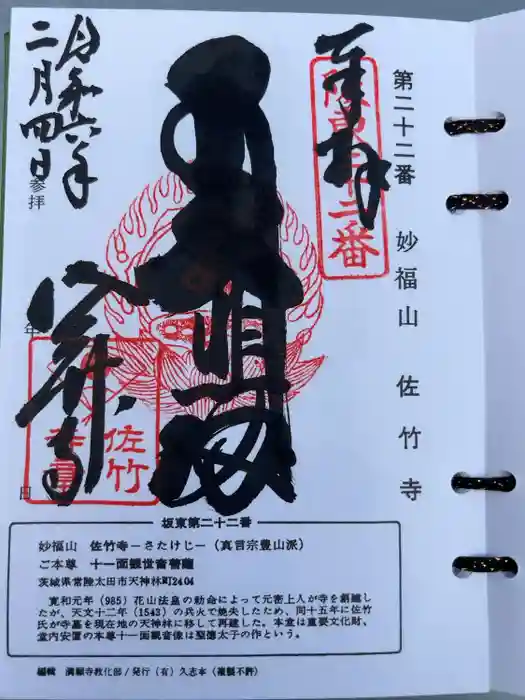 第二十二番 妙福山 佐竹寺
奉拝
令和六年
二月四日
参拝
年
日
佐竹
坂東第二十二番
妙福山 佐竹寺−さたけじ−（真言宗豊山派）
ご本尊 十一面観世音菩薩
茨城県常陸太田市天神林町2404
寛和元年（985）花山法皇の勅命によって元密上人が寺を創建し
たが、天文十二年（1543）の兵火で焼失したため、同十五年に佐竹
氏が寺基を現在地の天神林に移して再建した。本堂は重要文化財、
堂内安置の本尊十一面観音像は聖徳太子の作という。
編輯 満願寺教化部/発行（有）久志本（複製不許）